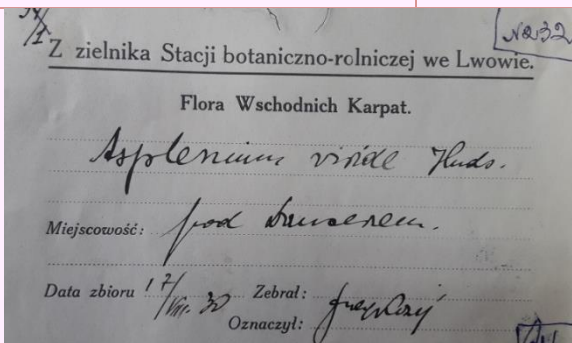 N232
Z zielnika Stacji botaniczno-rolniczej we Lwowie.
Flora Wschodnich Karpat.
Asplenium viride Huds.
Miejscowość: pod
Data zbioru 17/VII. 32 Zebrał:
Oznaczył: